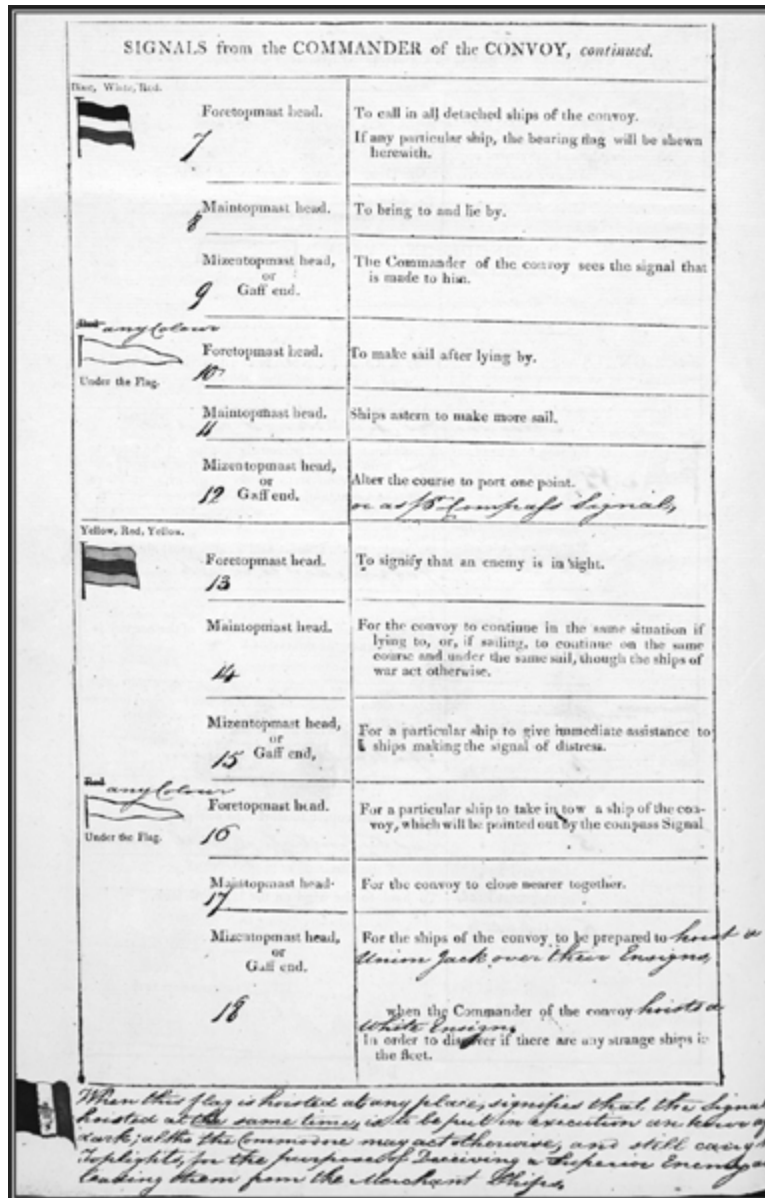 SIGNALS from the COMMANDER of the CONVOY, continued.
Blue, White, Red.
Foretopmast head.
7
To call in all detached ships of the convoy.
If any particular ship, the bearing flag will be shewn
herewith.
Maintopmast head.
8
To bring to and lie by.
Mizentopmast head,
or
Gaff end.
9
The Commander of the convoy sees the signal that
is made to him.
Red any Colour
Under the Flag.
Foretopmast head.
10
To make sail after lying by.
Maintopmast head.
11
Ships astern to make more sail.
Mizentopmast head,
or
12 Gaff end.
Alter the course to port one point.
or as pr Compass Signal,
Yellow, Red, Yellow.
Foretopmast head.
13
To signify that an enemy is in sight.
Maintopmast head.
14
For the convoy to continue in the same situation if
lying to, or, if sailing, to continue on the same
course and under the same sail, though the ships of
war act otherwise.
Mizentopmast head,
or
15 Gaff end,
For a particular ship to give immediate assistance to
ships making the signal of distress.
Red any Colour
Under the Flag.
Foretopmast head.
16
For a particular ship to take in tow a ship of the con-
voy, which will be pointed out by the compass Signal
Maintopmast head.
17
For the convoy to close nearer together.
Mizentopmast head,
or
Gaff end.
18
For the ships of the convoy to be prepared to hoist a
Union Jack over their Ensigns,
when the Commander of the convoy hoists a
White Ensign,
In order to discover if there are any strange ships in
the fleet.
When this flag is hoisted at any place, signifies that the Signal
hoisted at the same time, is to be put in execution an hour
dark; altho the Commodore may act otherwise, and still carry
Toplights, for the purpose of Deceiving a Superior Enemy
leading them from the Merchant Ships,